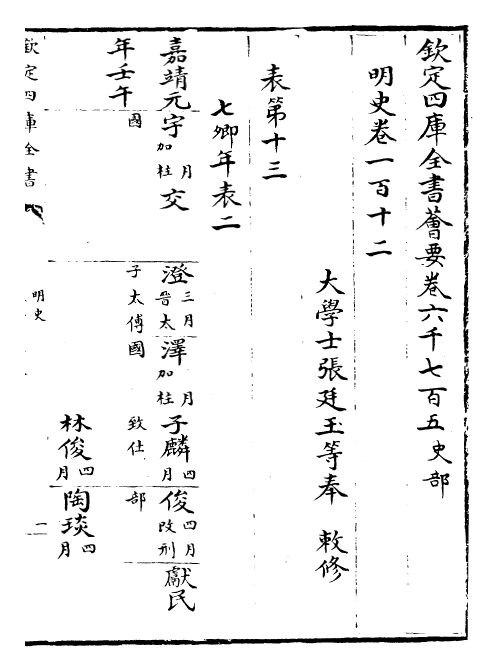 欽定四庫全書薈要卷六千七百五 史部
明史卷一百十二
大學士張廷玉等奉 敕修
表第十三
七卿年表二
嘉靖元宇 月加柱 交 澄 三月晉太 澤 月加柱 子麟 四月 俊 四月改刑 獻民
年壬午 國 子太傅 國 致仕 部
林俊 四月 陶琰 四月
欽定四庫全書
明史
一